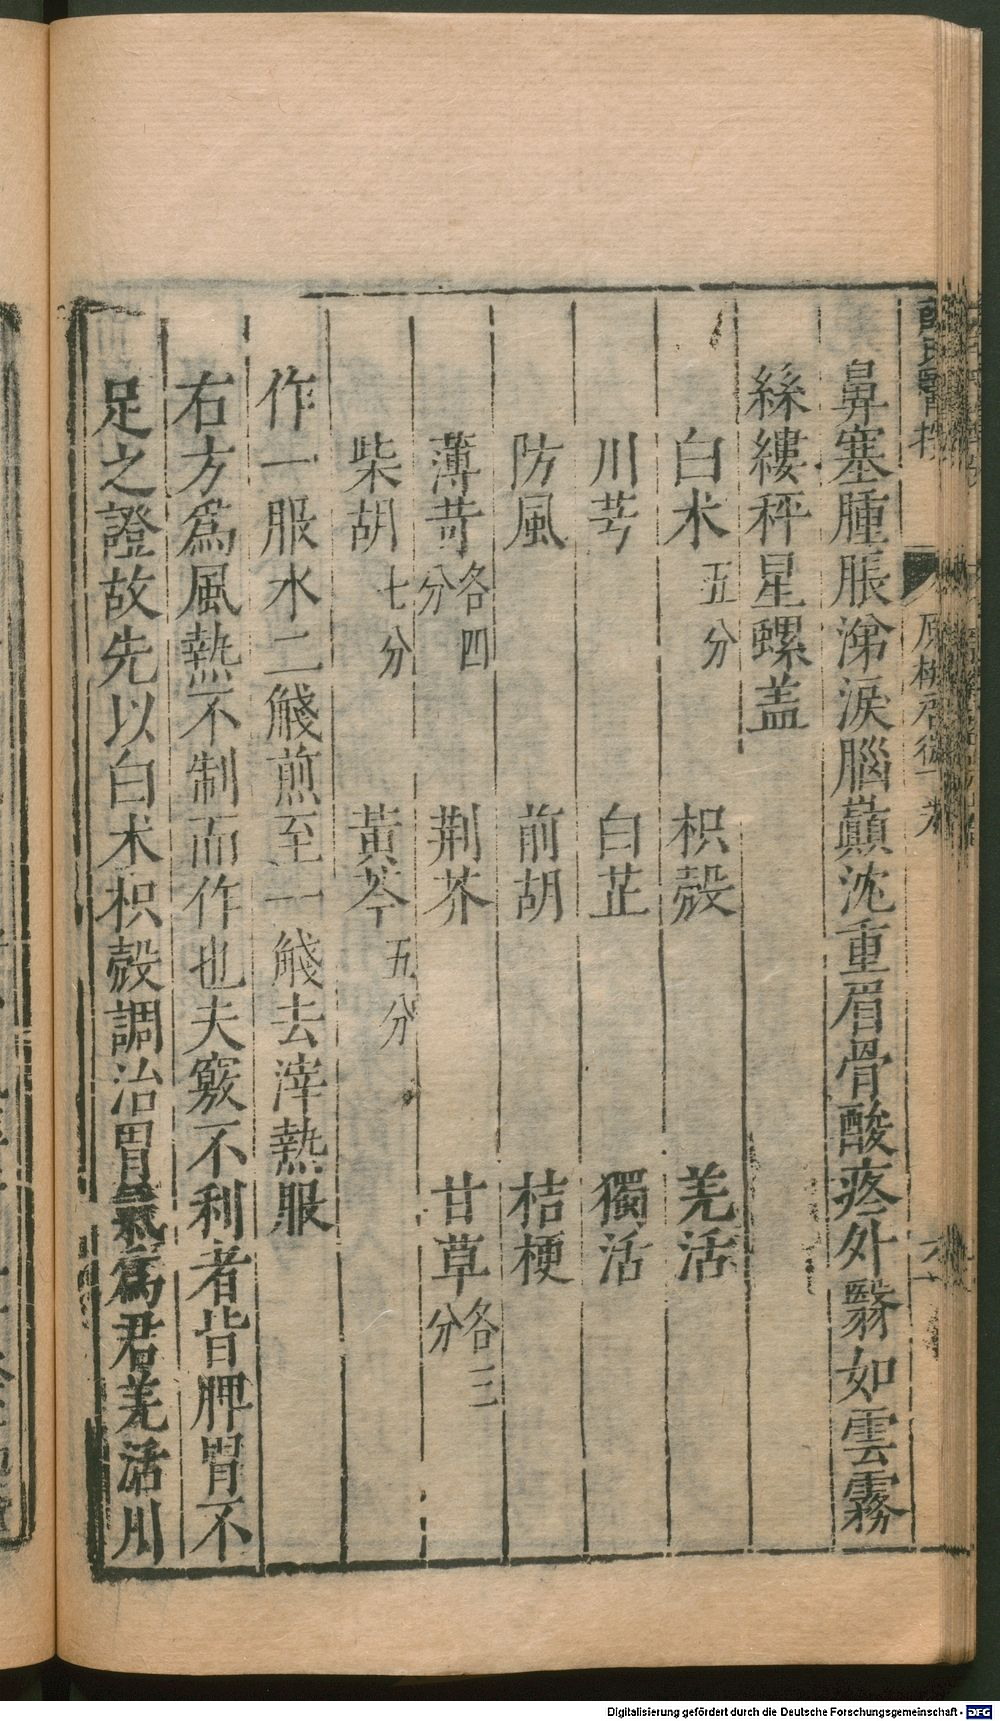 鼻塞腫脹涕淚腦巔沈重眉骨酸疼外翳如雲霧
絲縷秤星螺盖
白术五分 枳殼 羌活
川芎 白芷 獨活
防風 前胡 桔梗
薄苛各四分 荆芥 甘草各三分
柴胡七分 黃芩五分
作一服水二𩰚煎至一𩰚去滓熱服
右方爲風熱不制而作也夫竅不利者皆脾胃不
足之證故先以白术枳殼調治胃氣爲君羌活川
Digitalisierung gefördert durch die Deutsche Forschungsgemeinschaft - DFG